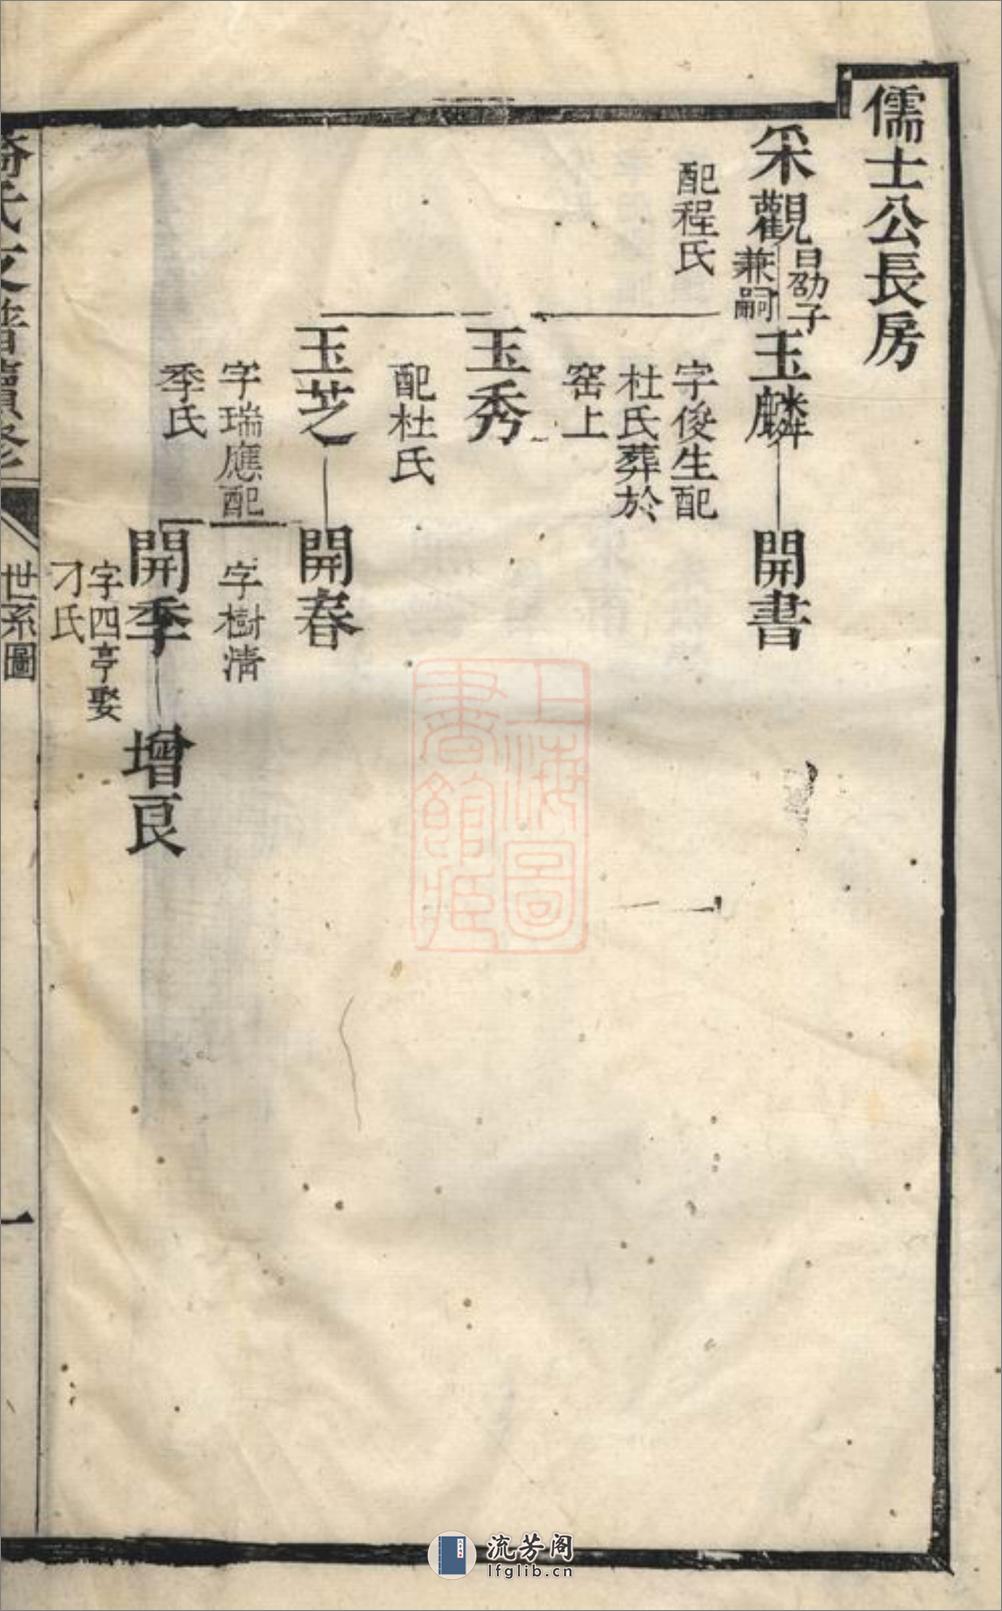 儒士公長房
采觀
曰劭子
兼嗣
配程氏
玉麟
字俊生配
杜氏葬於
窑上
開書
玉秀
配杜氏
玉芝
字瑞應配
季氏
開春
字樹清
開季
字四亭娶
刁氏
增良
氏支譜續修
世系圖
一
上海圖
書館藏
流芳阁
lfglib.cn